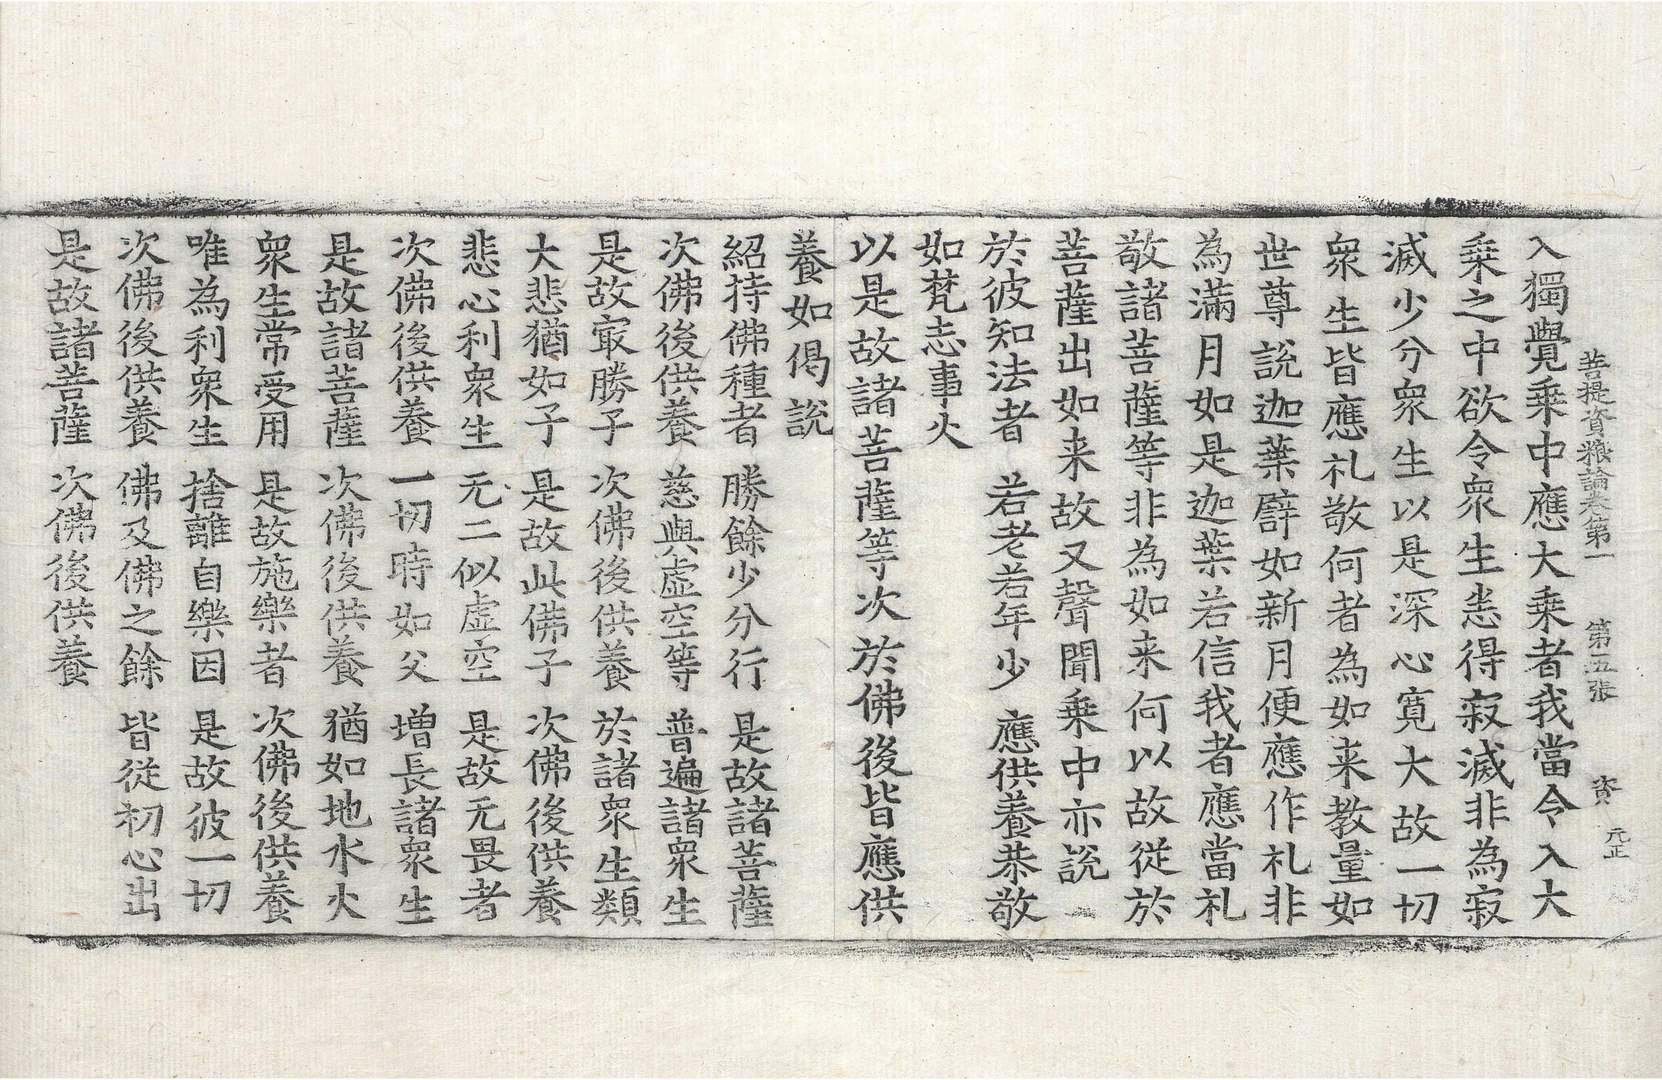 菩提資粮論卷第一　第五張　資　元正
入獨覺乗中應大乗者我當令入大
乗之中欲令衆生悉得寂滅非為寂
滅少分衆生以是深心寬大故一切
衆生皆應礼敬何者為如来教量如
世尊說迦葉譬如新月便應作礼非
為滿月如是迦葉若信我者應當礼
敬諸菩薩等非為如来何以故従於
菩薩出如来故又聲聞乗中亦說
於彼知法者　若老若年少　應供養恭敬
如梵志事火
以是故諸菩薩等次於佛後皆應供
養如偈說
紹持佛種者　勝餘少分行　是故諸菩薩
次佛後供養　慈與虛空等　普遍諸衆生
是故冣勝子　次佛後供養　於諸衆生類
大悲猶如子　是故此佛子　次佛後供養
悲心利衆生　无二似虛空　是故无畏者
次佛後供養　一切時如父　增長諸衆生
是故諸菩薩　次佛後供養　猶如地水火
衆生常受用　是故施樂者　次佛後供養
唯為利衆生　捨離自樂因　是故彼一切
次佛後供養　佛及佛之餘　皆従初心出
是故諸菩薩　次佛後供養